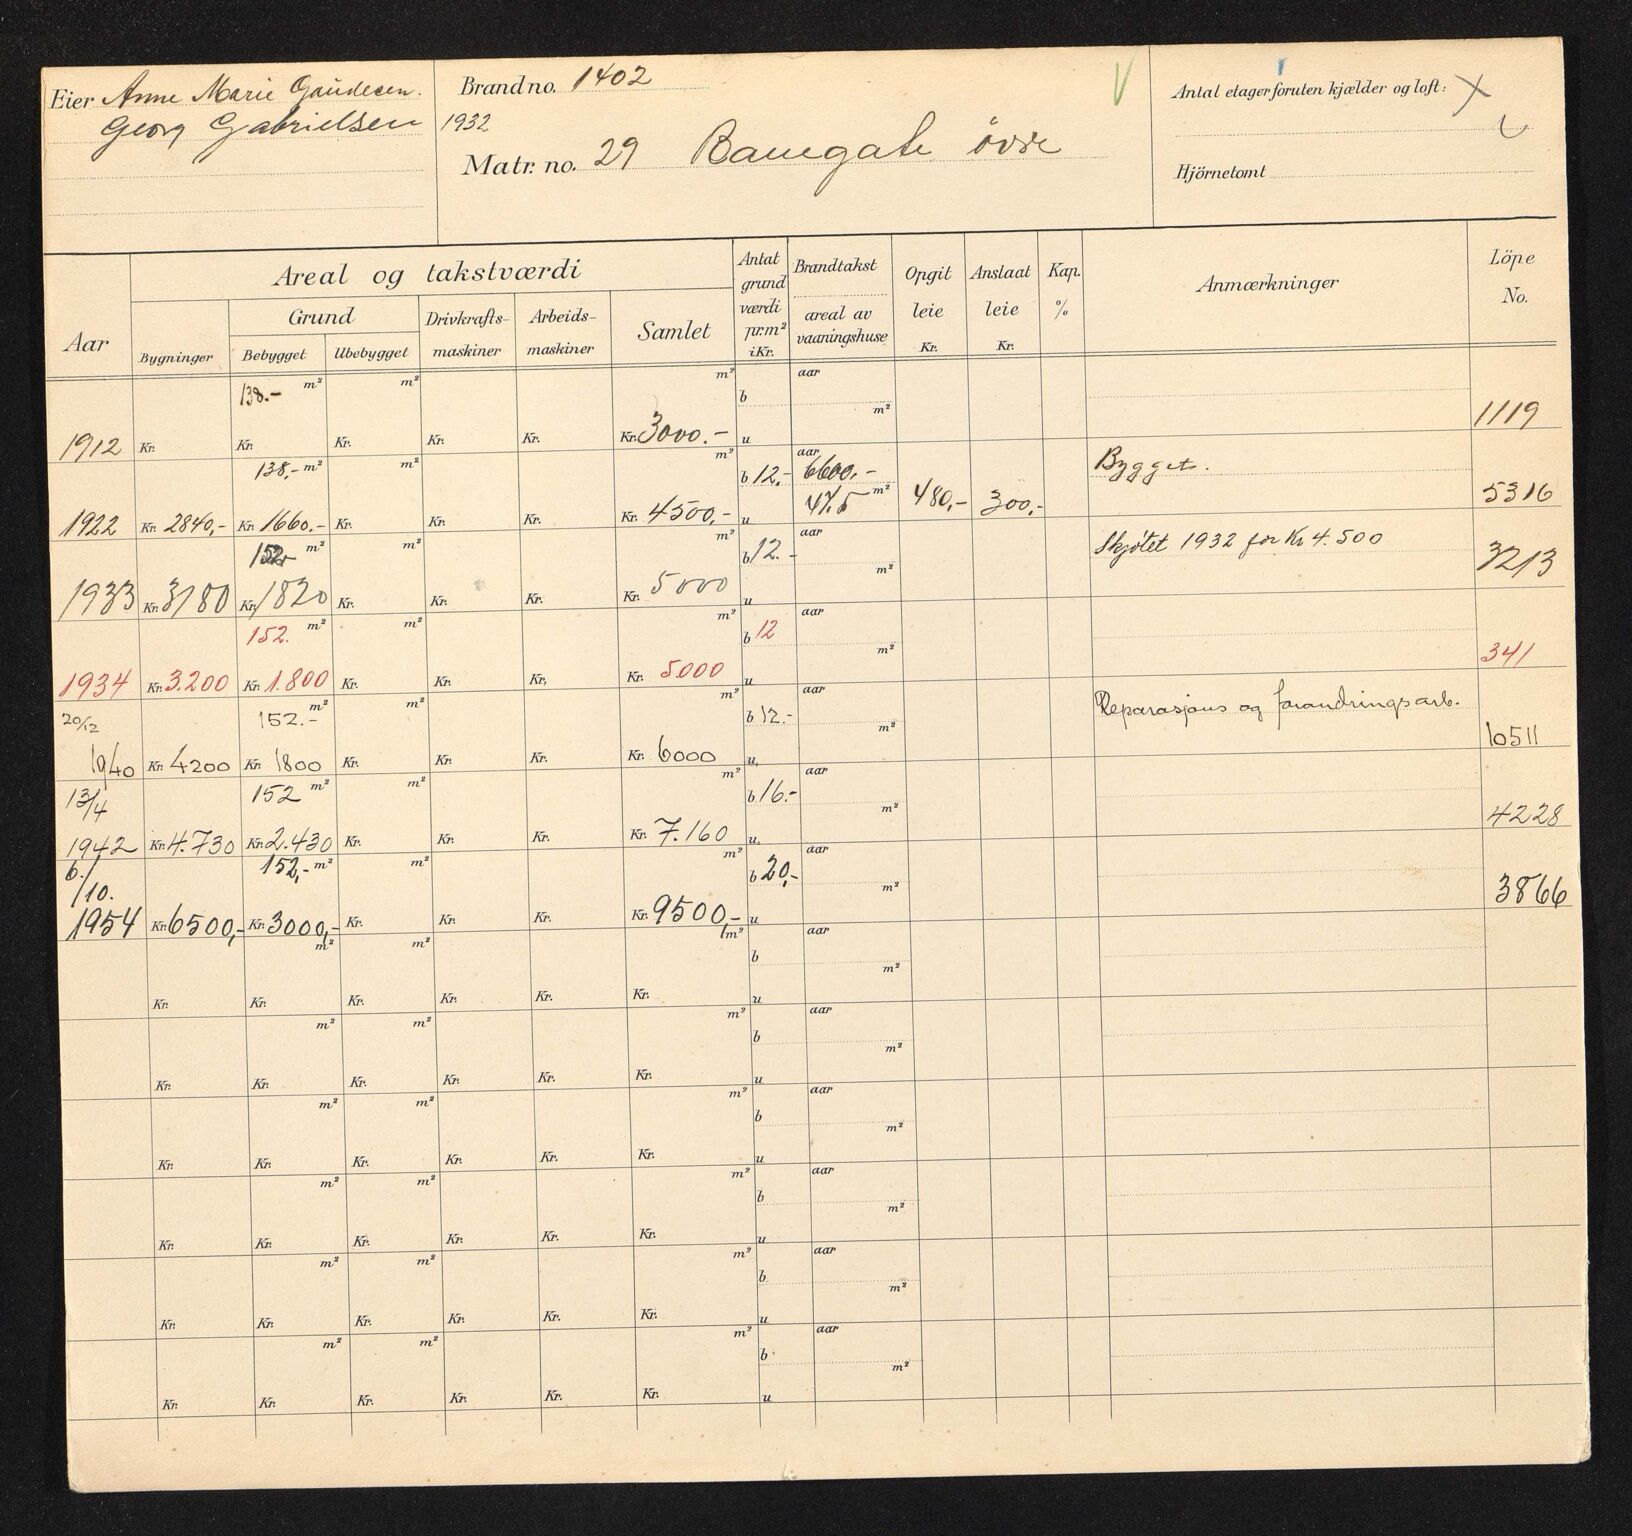 Eier Anne Marie Gaudesen.
Georg Gabrielsen
Brandno. 1402
1932
Matr. no. 29 Banegate øvre
Antal etager foruten kjælder og loft: X
Hjörnetomt
Aar
Areal og takstværdi
Bygninger
Grund
Bebygget
Ubebygget
Drivkrafts-
maskiner
Arbeids-
maskiner
Samlet
Antat
grund
værdi
pr.m²
i Kr.
Brandtakst
areal av
vaaningshuse
Opgit
leie
Kr.
Anslaat
leie
Kr.
Kap.
%
Anmærkninger
Löpe
No.
138.- m² m² m² b aar
m²
1912 Kr. Kr. Kr. Kr. Kr. Kr. 3000.- u 1119
138,- m² m² m² b 12,- aar 6600,- Bygget.
47.5 m² 480,- 300,-
1922 Kr. 2840,- Kr. 1660.- Kr. Kr. Kr. Kr. 4500,- u 5316
152,- m² m² m² b 12.- aar Skjøtet 1932 for Kr 4.500
m²
1933 Kr. 3180 Kr. 1820 Kr. Kr. Kr. Kr. 5000 u 3213
152. m² m² m² b 12 aar
m²
1934 Kr. 3.200 Kr. 1.800 Kr. Kr. Kr. Kr. 5000 u 341
20/12 152.- m² m² m² b 12.- aar Reparasjons og forandringsarb.
m²
1940 Kr. 4200 Kr. 1800 Kr. Kr. Kr. Kr. 6000 u 10511
13/4 152 m² m² m² b 16.- aar
m²
1942 Kr. 4.730 Kr. 2.430 Kr. Kr. Kr. Kr. 7.160 u 4228
6./10. 152,- m² m² m² b 20,- aar
m²
1954 Kr. 6500,- Kr. 3000,- Kr. Kr. Kr. Kr. 9500,- u 3866
m² m² m² b aar
m²
Kr. Kr. Kr. Kr. Kr. Kr. u
m² m² m² b aar
m²
Kr. Kr. Kr. Kr. Kr. Kr. u
m² m² m² b aar
m²
Kr. Kr. Kr. Kr. Kr. Kr. u
m² m² m² b aar
m²
Kr. Kr. Kr. Kr. Kr. Kr. u
m² m² m² b aar
m²
Kr. Kr. Kr. Kr. Kr. Kr. u
m² m² m² b aar
m²
Kr. Kr. Kr. Kr. Kr. Kr. u